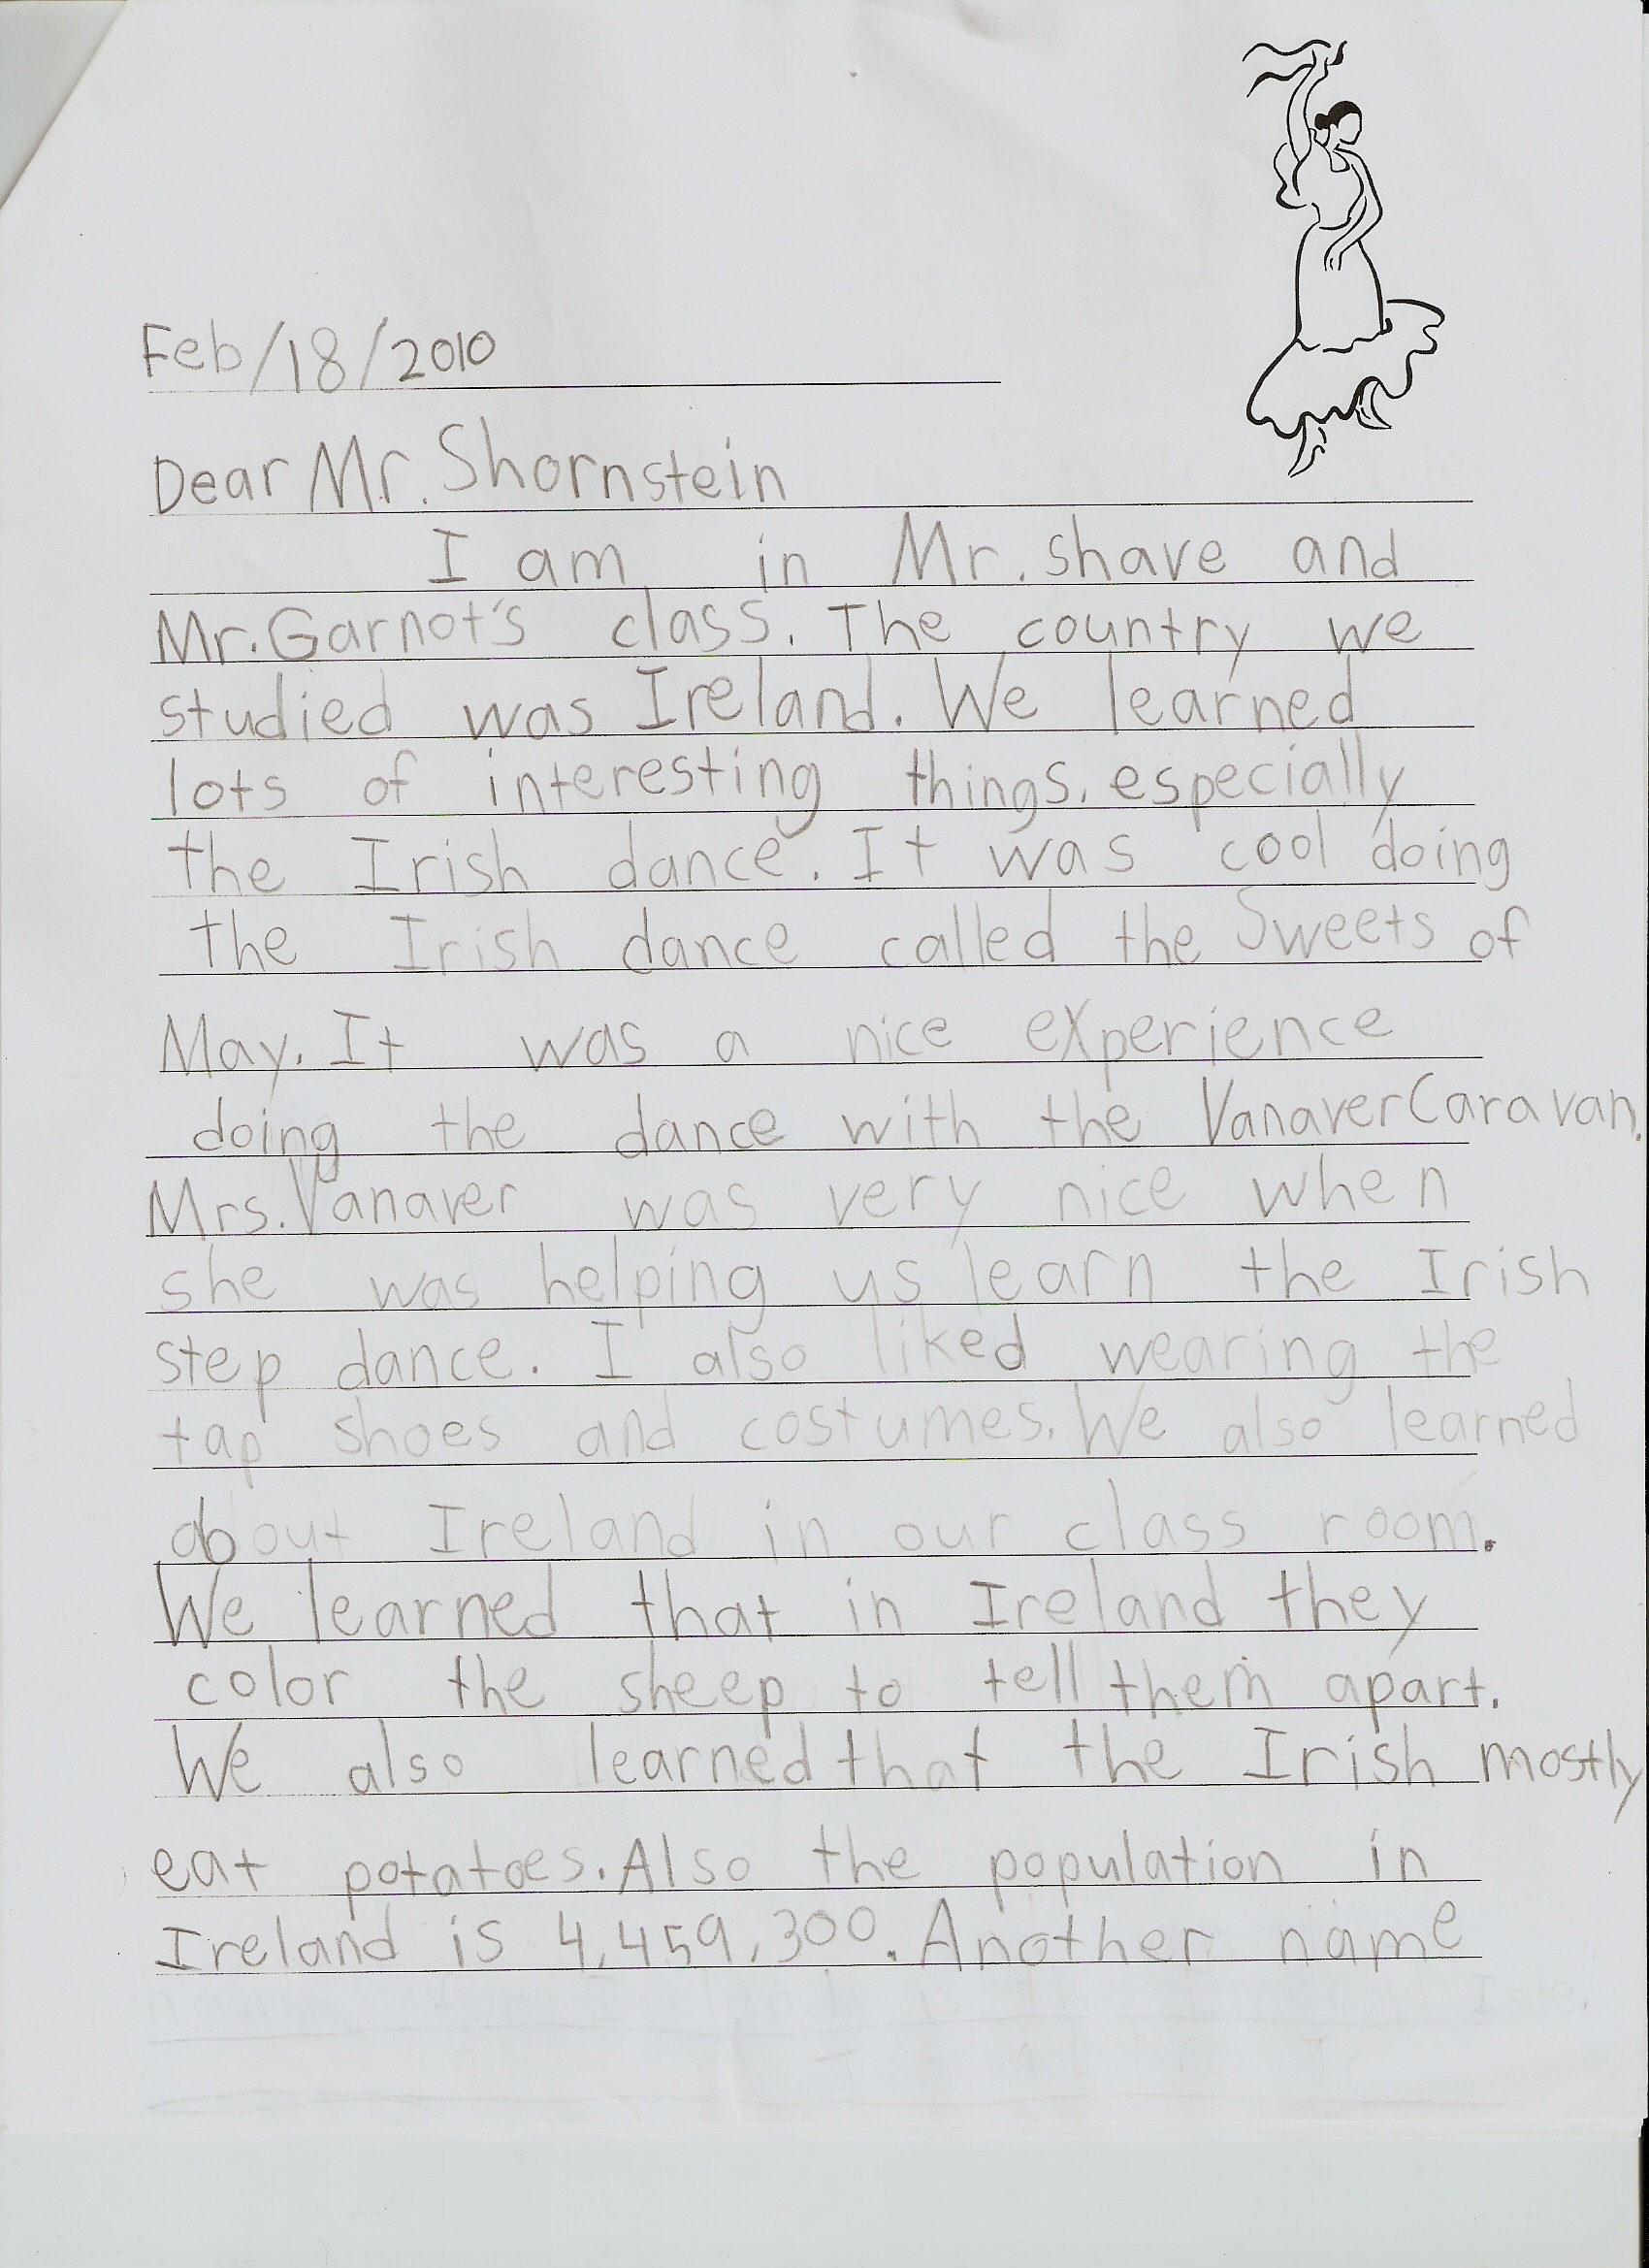 Feb/18/2010
Dear Mr. Shornstein
I am in Mr. shave and
Mr. Garnot's class. The country we
studied was Ireland. We learned
lots of interesting things. especially
the Irish dance. It was cool doing
the Irish dance called the Sweets of
May. It was a nice experience
doing the dance with the Vanaver Caravan.
Mrs. Vanaver was very nice when
she was helping us learn the Irish
step dance. I also liked wearing the
tap shoes and costumes. We also learned
about Ireland in our class room.
We learned that in Ireland they
color the sheep to tell them apart.
We also learned that the Irish mostly
eat potatoes. Also the population in
Ireland is 4,459,300. Another name